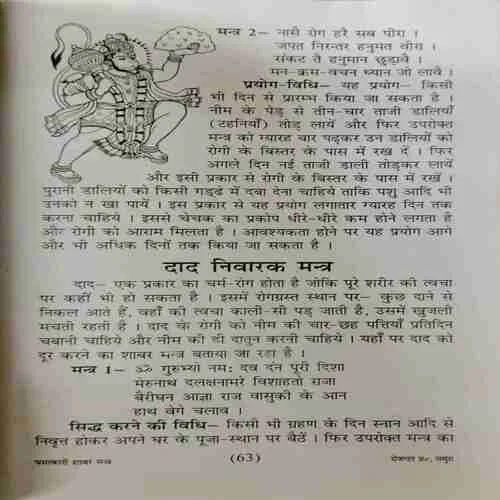 मन्त्र 2– नासै रोग हरै सब पीरा ।
जपत निरन्तर हनुमत वीरा ।
संकट तै हनुमान छुड़ावै ।
मन-क्रम-वचन ध्यान जो लावै ।
प्रयोग-विधि– यह प्रयोग- किसी
भी दिन से प्रारम्भ किया जा सकता है ।
नीम के पेड़ से तीन-चार ताजी डालियाँ
(टहनियाँ) तोड़ लायें और फिर उपरोक्त
मन्त्र को ग्यारह बार पढ़कर उन डालियों को
रोगी के बिस्तर के पास में रख दें । फिर
अगले दिन नई ताजी डाली तोड़कर लायें
और इसी प्रकार से रोगी के बिस्तर के पास में रखें ।
पुरानी डालियों को किसी गड्ढे में दबा देना चाहिये ताकि पशु आदि भी
उनको न खा पायें । इस प्रकार से यह प्रयोग लगातार ग्यारह दिन तक
करना चाहिये । इससे चेचक का प्रकोप धीरे-धीरे कम होने लगता है
और रोगी को आराम मिलता है । आवश्यकता होने पर यह प्रयोग आगे
और भी अधिक दिनों तक किया जा सकता है ।
दाद निवारक मन्त्र
दाद– एक प्रकार का चर्म-रोग होता है जोकि पूरे शरीर की त्वचा
पर कहीं भी हो सकता है । इसमें रोगग्रस्त स्थान पर– कुछ दाने से
निकल आते हैं, वहाँ की त्वचा काली-सी पड़ जाती है, उसमें खुजली
मचती रहती है । दाद के रोगी को नीम की चार-छह पत्तियाँ प्रतिदिन
चबानी चाहिये और नीम की ही दातुन करनी चाहिये । यहाँ पर दाद को
दूर करने का शाबर मन्त्र बताया जा रहा है ।
मन्त्र 1– ॐ गुरुभ्यो नमः देव देन पूरी दिशा
मेरुनाथ दलक्षनामरे विशाहतो राजा
बैरीघन आज्ञा राज वासुकी के आन
हाथ वेगे चलाव ।
सिद्ध करने की विधि– किसी भी ग्रहण के दिन स्नान आदि से
निवृत्त होकर अपने घर के पूजा-स्थान पर बैठें । फिर उपरोक्त मन्त्र का
चमत्कारी शाबर मन्त्र (63) मथुरा